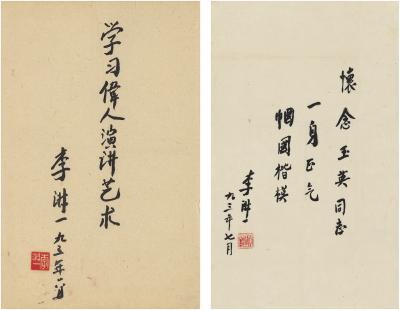 学习偉人演讲艺术
李淋一
九三年
懷念玉英同志
一身正气
帼國楷模
李淋一
九三年七月